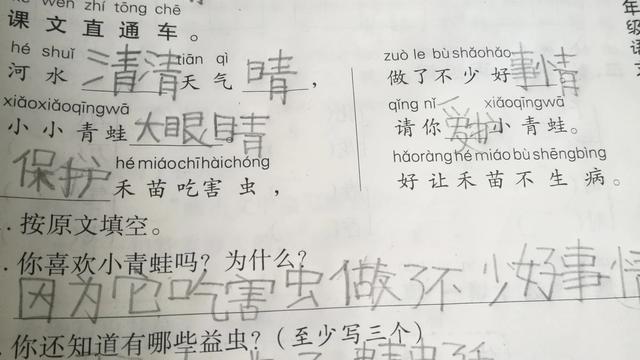 kè wén zhí tōng chē
课文直通车。
hé shuǐ tiān qì
河水清清天气晴，
xiǎoxiǎoqīngwā
小小青蛙大眼睛。
hé miáo chī hài chóng
保护禾苗吃害虫，
zuò le bù shǎo hǎo
做了不少好事情
qǐng nǐ xiǎoqīngwā
请你爱护小青蛙。
hǎo ràng hé miáo bù shēng bìng
好让禾苗不生病。
. 按原文填空。
. 你喜欢小青蛙吗？为什么？
因为它吃害虫做了不少好事情
. 你还知道有哪些益虫？（至少写三个）